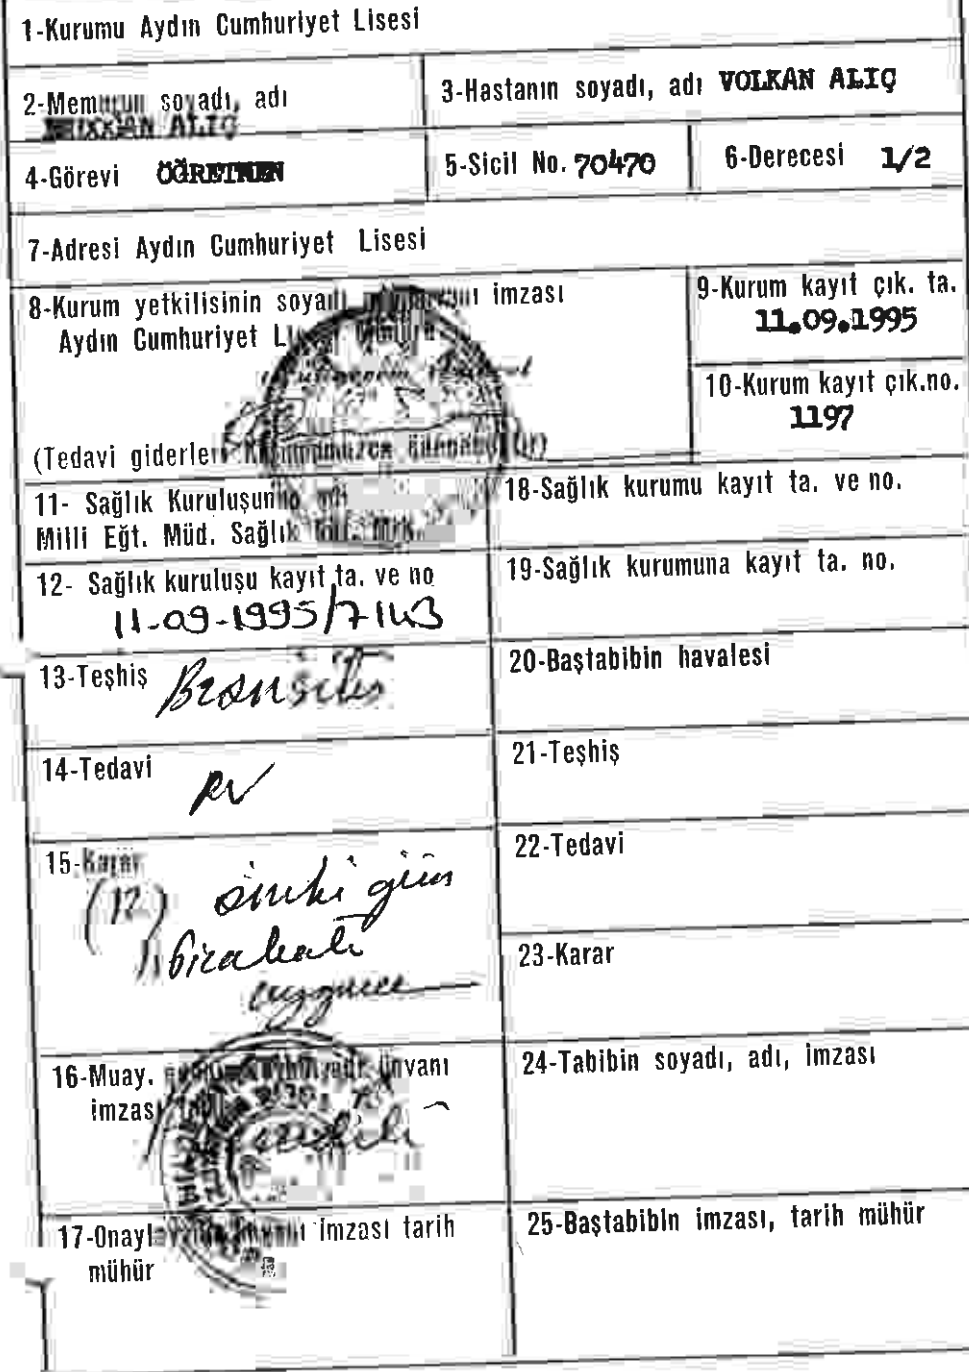 1-Kurumu Aydın Cumhuriyet Lisesi
2-Memurun soyadı, adı
ALIÇ
3-Hastanın soyadı, adı VOLKAN ALIÇ
4-Görevi ÖĞRETMEN
5-Sicil No. 70470
6-Derecesi 1/2
7-Adresi Aydın Cumhuriyet Lisesi
8-Kurum yetkilisinin soyadı imzası
Aydın Cumhuriyet
9-Kurum kayıt çık. ta.
11.09.1995
10-Kurum kayıt çık.no.
1197
(Tedavi giderleri
11- Sağlık Kuruluşunun
Milli Eğt. Müd. Sağlık
12- Sağlık kuruluşu kayıt ta. ve no
11-09-1995/7143
13-Teşhis Bronşitis
14-Tedavi
15-Karar
(12) oniki gün
16-Muay. ünvanı
imzası
17-Onayl imzası tarih
mühür
18-Sağlık kurumu kayıt ta. ve no.
19-Sağlık kurumuna kayıt ta. no.
20-Baştabibin havalesi
21-Teşhiş
22-Tedavi
23-Karar
24-Tabibin soyadı, adı, imzası
25-Baştabibin imzası, tarih mühür